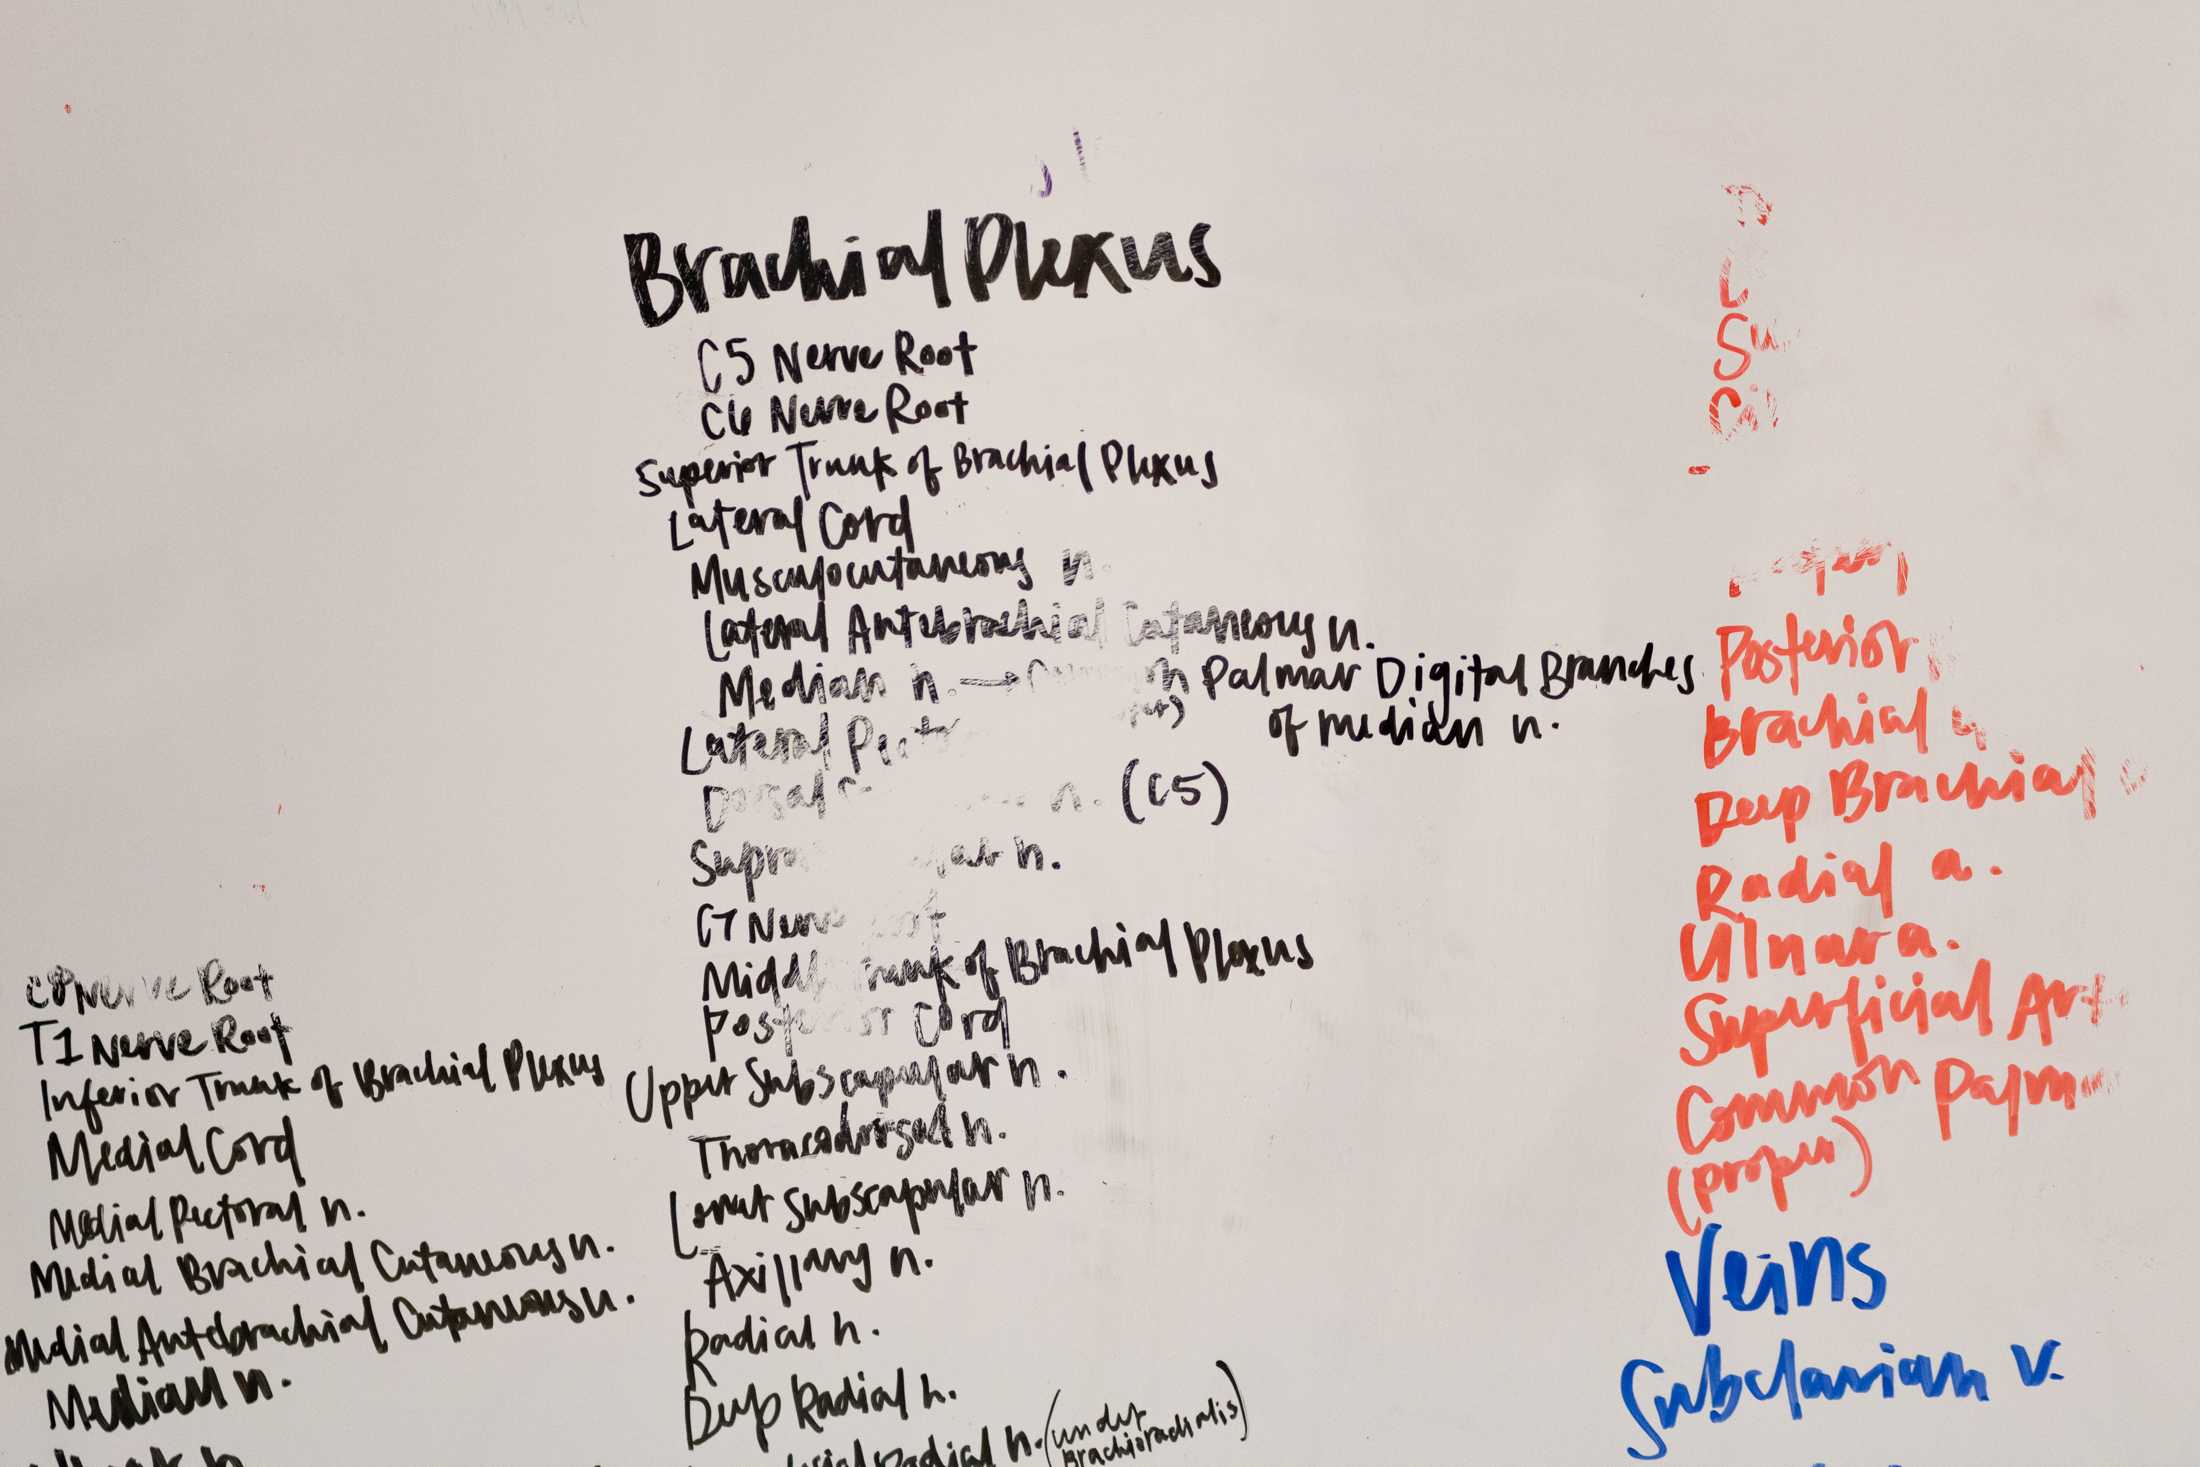 Brachial Plexus
C5 Nerve Root
C6 Nerve Root
Superior Trunk of Brachial Plexus
Lateral Cord
Musculocutaneous n.
Lateral Antebrachial Cutaneous n.
Median n. → Palmar Digital Branches
of median n.
Lateral
Dorsal n. (C5)
n.
C7 Nerve Root
Middle Trunk of Brachial Plexus
Posterior Cord
Upper Subscapular n.
Thoracodorsal n.
Lower Subscapular n.
Axillary n.
Radial n.
Deep Radial n.
Radial n. (under
Brachioradialis)
C8 Nerve Root
T1 Nerve Root
Inferior Trunk of Brachial Plexus
Medial Cord
Medial Pectoral n.
Medial Brachial Cutaneous n.
Medial Antebrachial Cutaneous n.
Median n.
Posterior
Brachial
Deep Brachial
Radial a.
Ulnar a.
Superficial
Common
(proper)
Veins
Subclavian v.